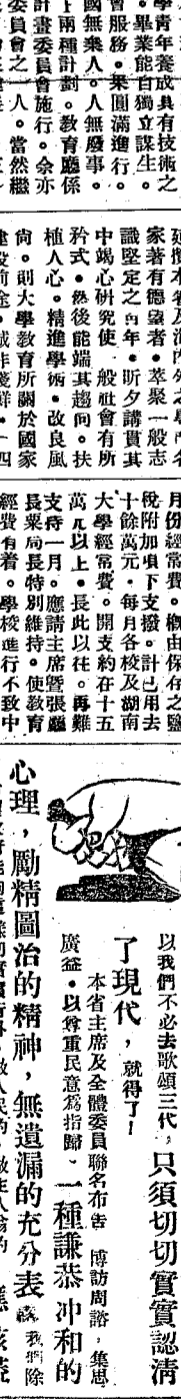 學青年養成具有技術之
。畢業能自獨立謀生。
會服務。果圓滿進行。
國無樂人。人無廢事。
上兩種計劃。教育廳係
計畫委員會施行。余亦
委員會之一人。當然繼
家著有德望者。萃聚一般志
識堅定之青年。昕夕講貫其
中竭心研究使一般社會有所
矜式。然後能端其趨向。扶
植人心。精進學術。改良風
尚。則大學教育所關於國家
月份經常費。概由保存之鹽
稅附加項下支撥。計已用去
十餘萬元。每月各校及湖南
大學經常費。開支約在十五
萬元以上。長此以往。再難
支持一月。應請主席暨張廳
長粟局長特別維持。使教育
經費有着。學校進行不致中
以我們不必去歌頌三代，只須切切實實認清
了現代，就得了！
本省主席及全體委員聯名布告 博訪周諮，集思
廣益。以尊重民意爲指歸、一種謙恭冲和的
心理，勵精圖治的精神，無遺漏的充分表 我們除